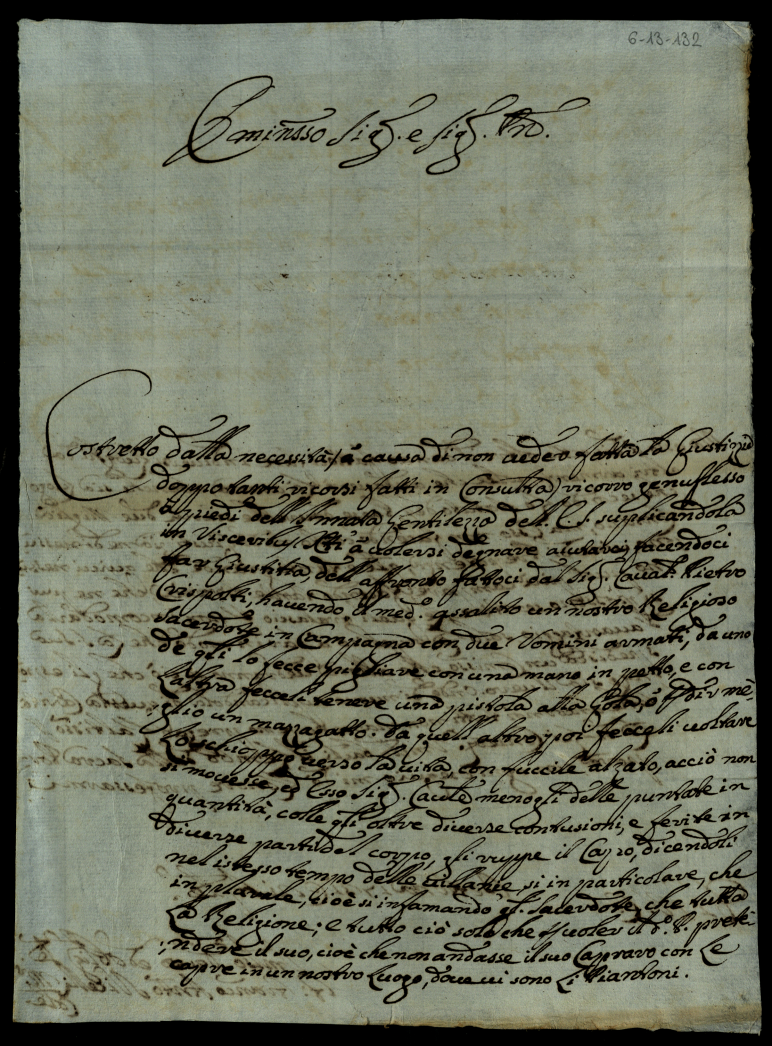 6-13-132
Eminẽsso Sig.r e Sig.r Prõ.
Costretto dalla necessità, à causa di non veder fatta la Giustizia
doppo tanti ricorsi fatti in Consulta, ricorro genuflesso
à piedi dell'Innata Gentilezza dell' E. S. suplicandola
in Visceribus à volersi degnare aiutarci, facendoci
far Giustitia, dell'affronto fattoci dal Sig.r Caval.r Pietro
Crispolti, havendo il med.o assalito un nostro Religioso
Sacerdote in Campagna con due Uomini armati, da uno
de gli lo fecce pigliare con una mano in petto, e con
l'altra fecceli tenere una pistola alla Gola, ò p dir mè,
glio un mazzagatto. da quell'altro poi fecceli voltare
lo schioppo verso la vita, con fuccile alzato, acciò non
si movesse, ed esso Sig.r Caule menogli delle puntate in
quantità, colle gl'altre diverse contusioni, e ferite in
diverse parti del corpo, gli ruppe il Capo, dicendoli
nel istesso tempo delle villanie, si in particolare, che
in plurale, cioè si infamando q.l Sacerdote, che tutta
la Religione; e tutto ciò solo che p voler il d.o P. preté,
ndere il suo, cioè che non andasse il suo Capraro con le
capre in un nostro luogo, dove vi sono li Piantoni.